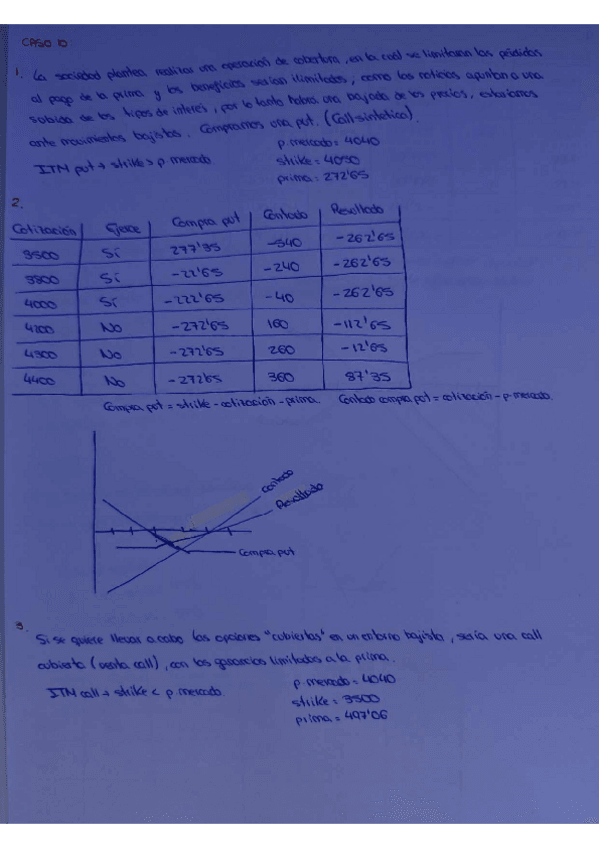 CASO 10
1. La sociedad plantea realizar una operación de cobertura, en la cual se limitaran las pérdidas
al pago de la prima y los beneficios serían ilimitados, como las noticias apuntan a una
subida de los tipos de interés, por lo tanto habrá una bajada de los precios, estaríamos
ante movimientos bajistas. Compramos una put. (Call sintética).
ITM put → strike > p. mercado
p. mercado = 4040
strike = 4050
prima: 272'65
2.
Cotización Ejerce Compra put Contado Resultado
3500 Sí 277'35 -540 -262'65
3800 Sí -22'65 -240 -262'65
4000 Sí -222'65 -40 -262'65
4200 No -272'65 160 -112'65
4300 No -272'65 260 -12'65
4400 No -272'65 360 87'35
Compra put = strike - cotización - prima. Contado compra put = cotización - p. mercado.
Contado
Resultado
Compra put
3.
Si se quiere llevar a cabo las opciones "cubiertas" en un entorno bajista, sería una call
cubierta (venta call), con las ganancias limitadas a la prima.
ITM call → strike < p. mercado.
p. mercado = 4040
strike = 3500
prima = 497'06